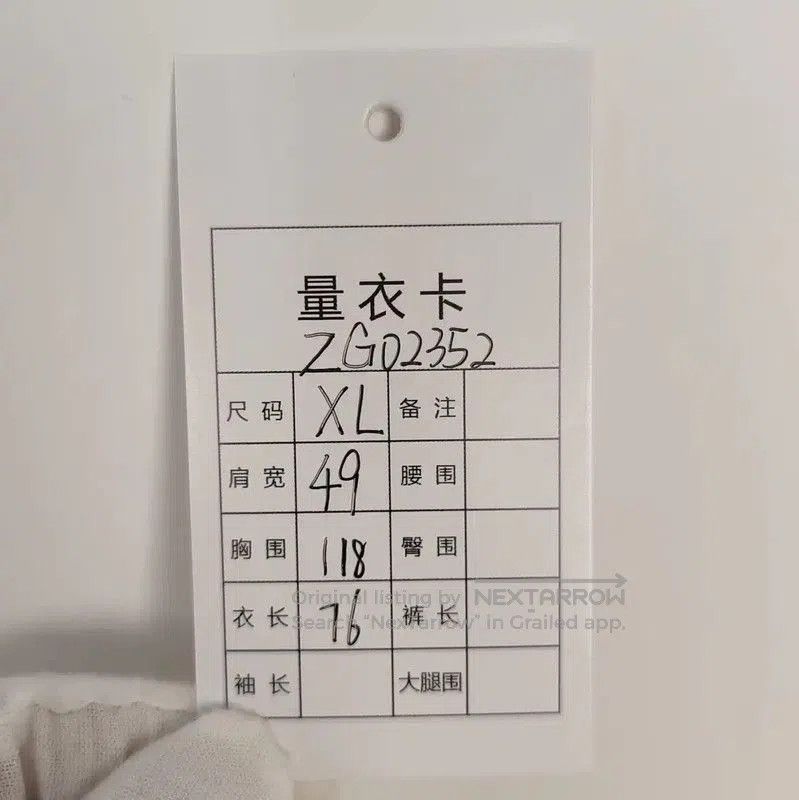 量衣卡
ZG02352
尺码 XL 备注
肩宽 49 腰围
胸围 118 臀围
Original listing by NEXTARROW
衣长 76 裤长
Search "NexTarrow" in Grailed app.
袖长 大腿围